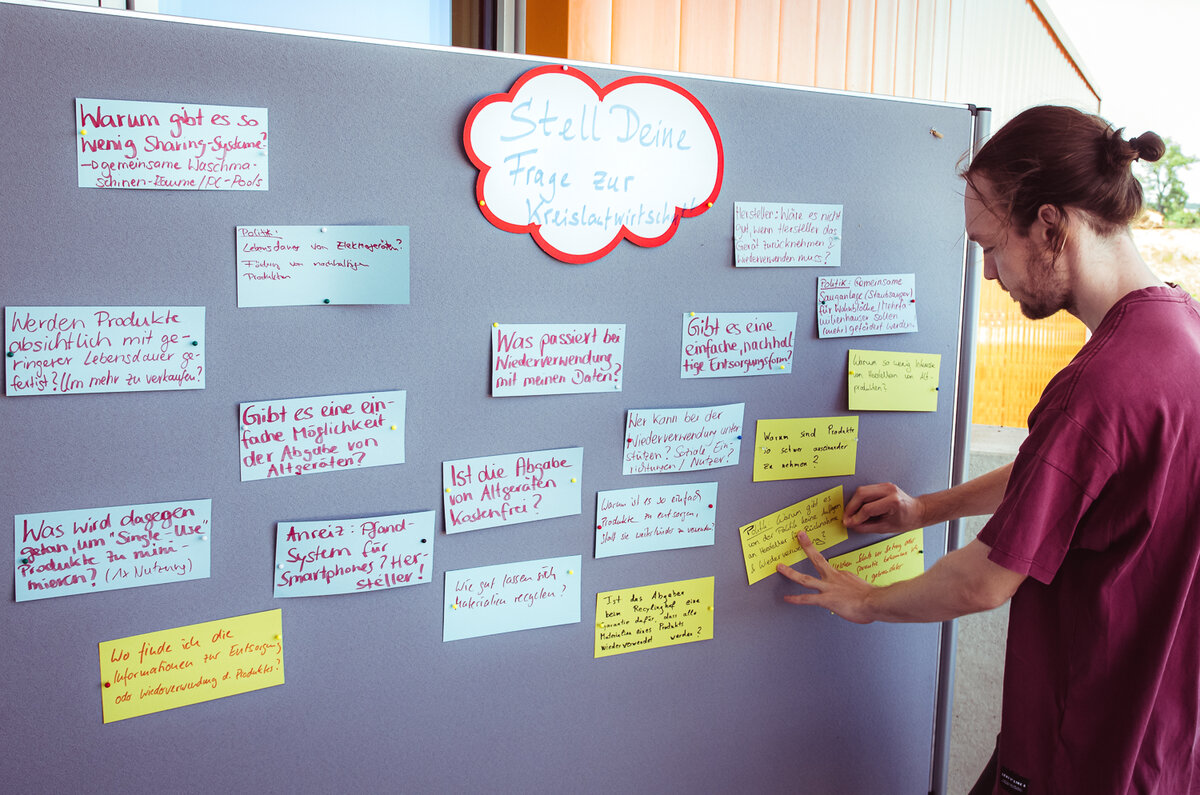 Stell Deine
Frage zur
Kreislaufwirtschaft
Warum gibt es so
wenig Sharing-Systeme?
→ gemeinsame Waschma-
schinen-Räume/PC-Pools
Politik:
Lebensdauer von Elektrogeräten?
Förderung von nachhaltigen
Produkten
Hersteller: Wäre es nicht
gut, wenn Hersteller das
Gerät zurücknehmen &
wiederverwenden muss?
Politik: Gemeinsame
Sauganlage (Staubsauger)
für Wohnblöcke/Mehrfa-
milienhäuser sollen
(mehr) gefördert werden
Werden Produkte
absichtlich mit ge-
ringerer Lebensdauer ge-
fertigt? Um mehr zu verkaufen?
Was passiert bei
Wiederverwendung
mit meinen Daten?
Gibt es eine
einfache, nachhal
tige Entsorgungsform?
Warum so wenig Interesse
von Herstellern an Alt-
produkten?
Gibt es eine ein-
fache Möglichkeit
der Abgabe von
Altgeräten?
Wer kann bei der
Wiederverwendung unter
stützen? Soziale Ein-
richtungen / Nutzer?
Warum sind Produkte
so schwer auseinander
zu nehmen?
Ist die Abgabe
von Altgeräten
kostenfrei?
Warum ist es so einfach
Produkte zu entsorgen,
statt sie weiterhin zu verwenden?
Politik: Warum gibt es
von der Politik keine Auflagen
an Hersteller für Rücknahme
& Wiederverwendung?
Was wird dagegen
getan, um "Single-Use"
Produkte zu mini-
mieren? (1x Nutzung)
Anreiz: Pfand-
System für
Smartphones? Her-
steller!
Wie gut lassen sich
Materialien recyclen?
Ist das Abgeben
beim Recyclinghof eine
Garantie dafür, dass alle
Materialien eines Produkts
wiederverwendet werden?
Garantie bekomme ich
Wo finde ich die
Informationen zur Entsorgung
oder Wiederverwendung d. Produktes?